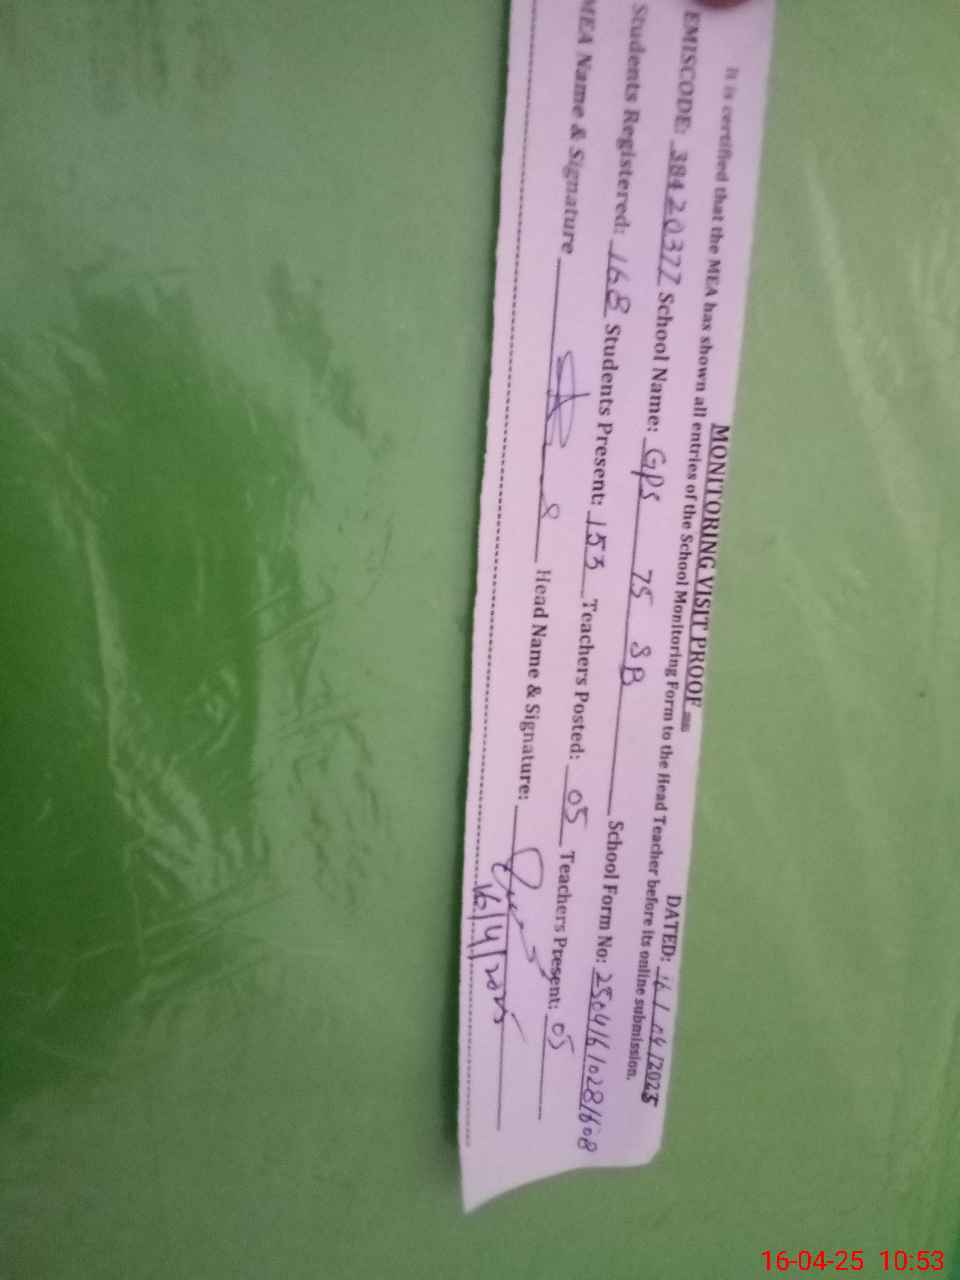 MONITORING VISIT PROOF
DATED: 16/04/2025
It is certified that the MEA has shown all entries of the School Monitoring Form to the Head Teacher before its online submission.
EMISCODE: 38420377 School Name: GPS 75 SB School Form No: 250416102811608
Students Registered: 168 Students Present: 153 Teachers Posted: 05 Teachers Present: 05
MEA Name & Signature Head Name & Signature:
16/4/2025
16-04-25 10:53